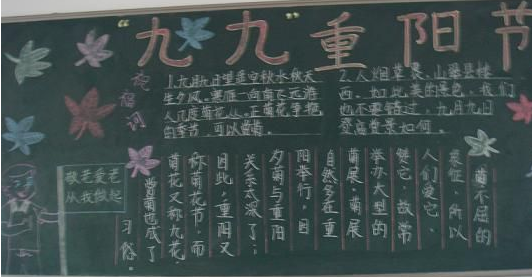 “九九”重阳节
祝福词
1.九月九日望遥空秋水秋天
生夕风。寒雁一向南飞远游
人几度菊花丛。正菊花争艳
的季节，可以赏菊。
2.人烟
西。如此美的景色，我们
也不要错过，九月九日
登高赏景如何。
敬老爱老
从我做起
菊不屈的
象征，所以
人们爱它、
赞它，故常
举办大型的
菊展，菊展
自然多在重
阳举行，因
夕菊与重阳
关系太深了；
因此，重阳又
称菊花节，而
菊花又称九花。
赏菊也成了
习俗。